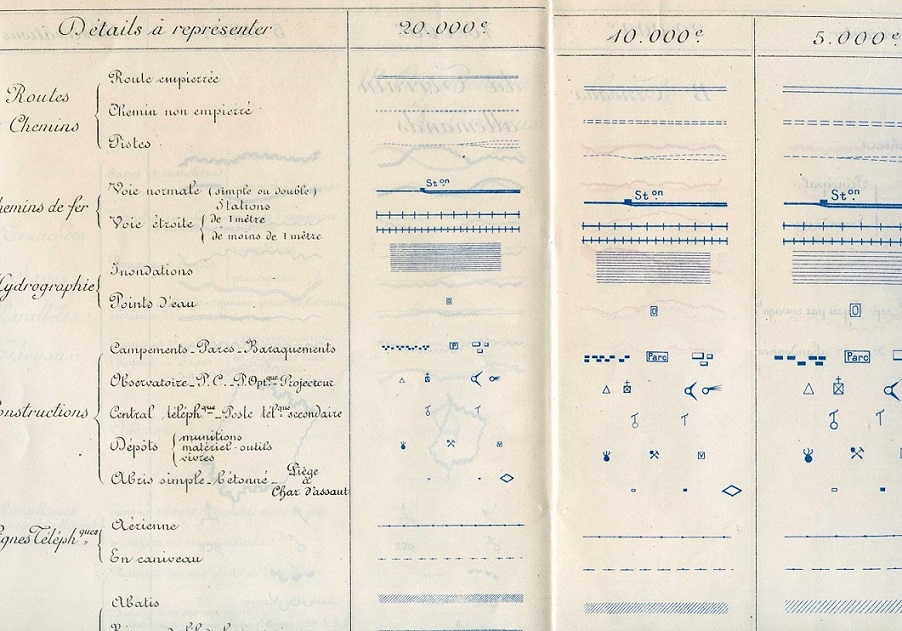 Détails à représenter 20.000e 10.000e 5.000e
Routes
Chemins
Route empierrée
Chemin non empierré
Pistes
hemins de fer
Voie normale (simple ou double)
Stations
Voie étroite { de 1 mètre
de moins de 1 mètre
St.on St.on St.on
Hydrographie
Inondations
Points d'eau
onstructions
Campements _ Parcs _ Baraquements P Parc Parc
Observatoire _ P.C. _ P.Opt.que Projecteur
Central téléph.que _ Poste tél.que secondaire
Dépôts { munitions
matériel-outils
vivres
Abris simple _ bétonné _ Piège
à
Char d'assaut
ignes Téléph.ques
Aérienne
En caniveau
Abatis